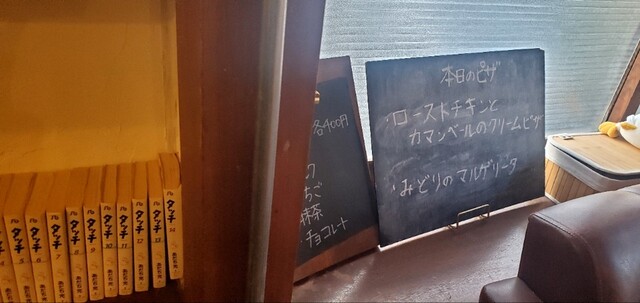 タッチ
5
タッチ
6
タッチ
7
タッチ
8
タッチ
9
タッチ
10
タッチ
11
タッチ
12
タッチ
各400円
いちご
抹茶
・チョコレート
本日のピザ
・ローストチキンと
カマンベールのクリームピザ
・みどりのマルゲリータ